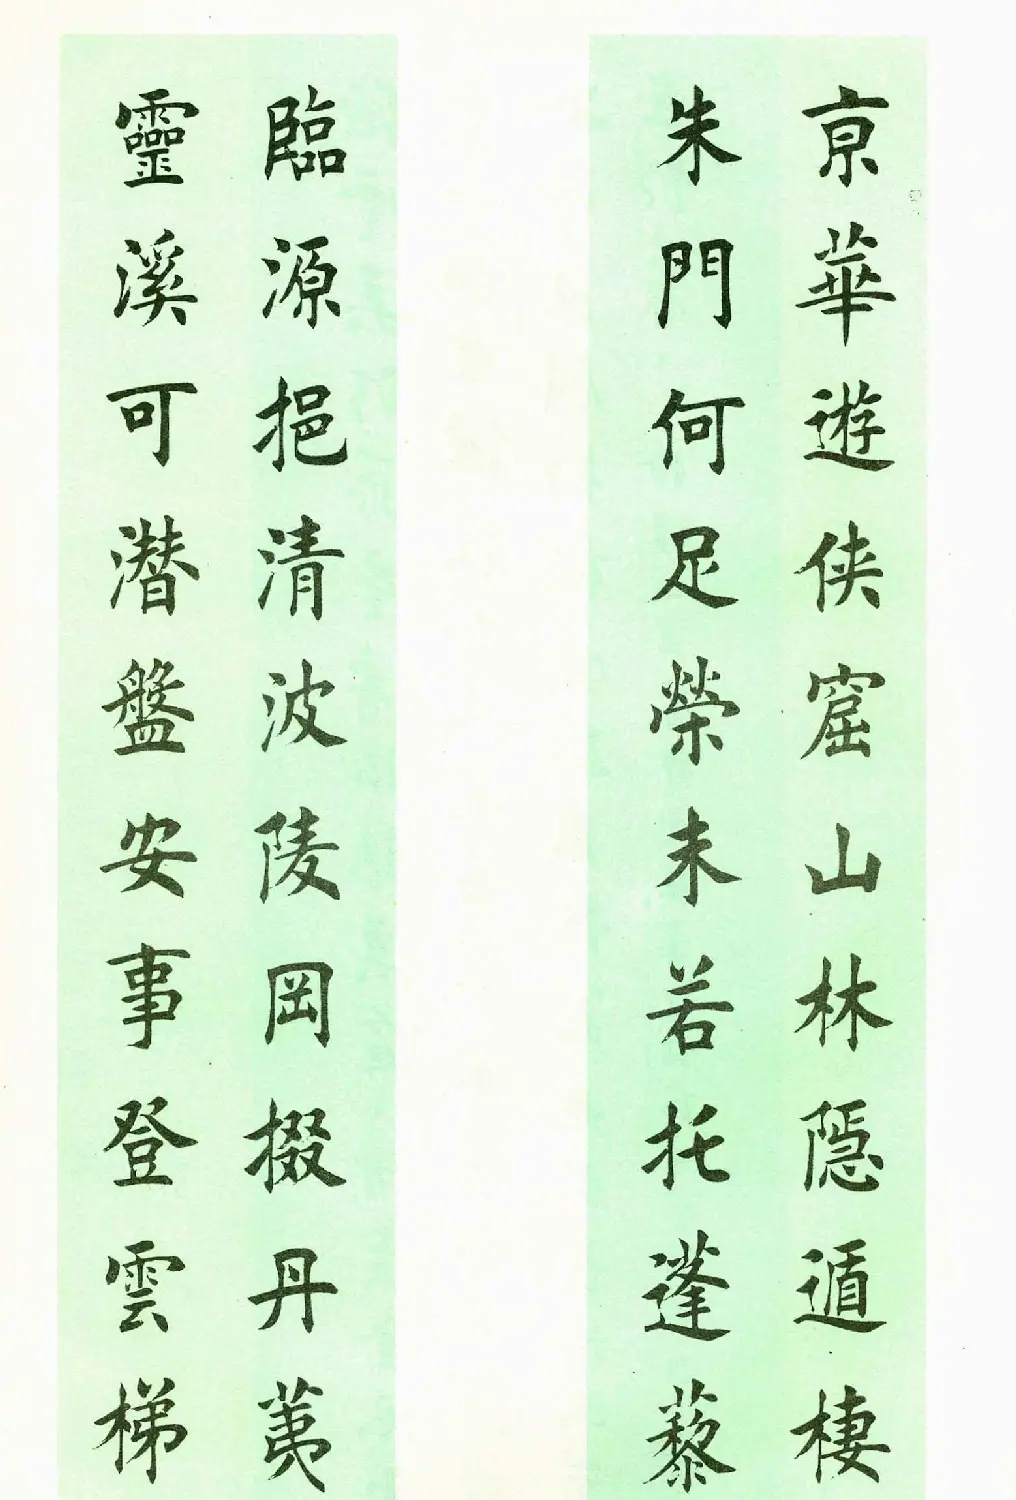 京華遊侠窟山林隱遁棲
朱門何足榮未若托蓬藜
臨源挹清波陵岡掇丹荑
靈溪可潛盤安事登雲梯